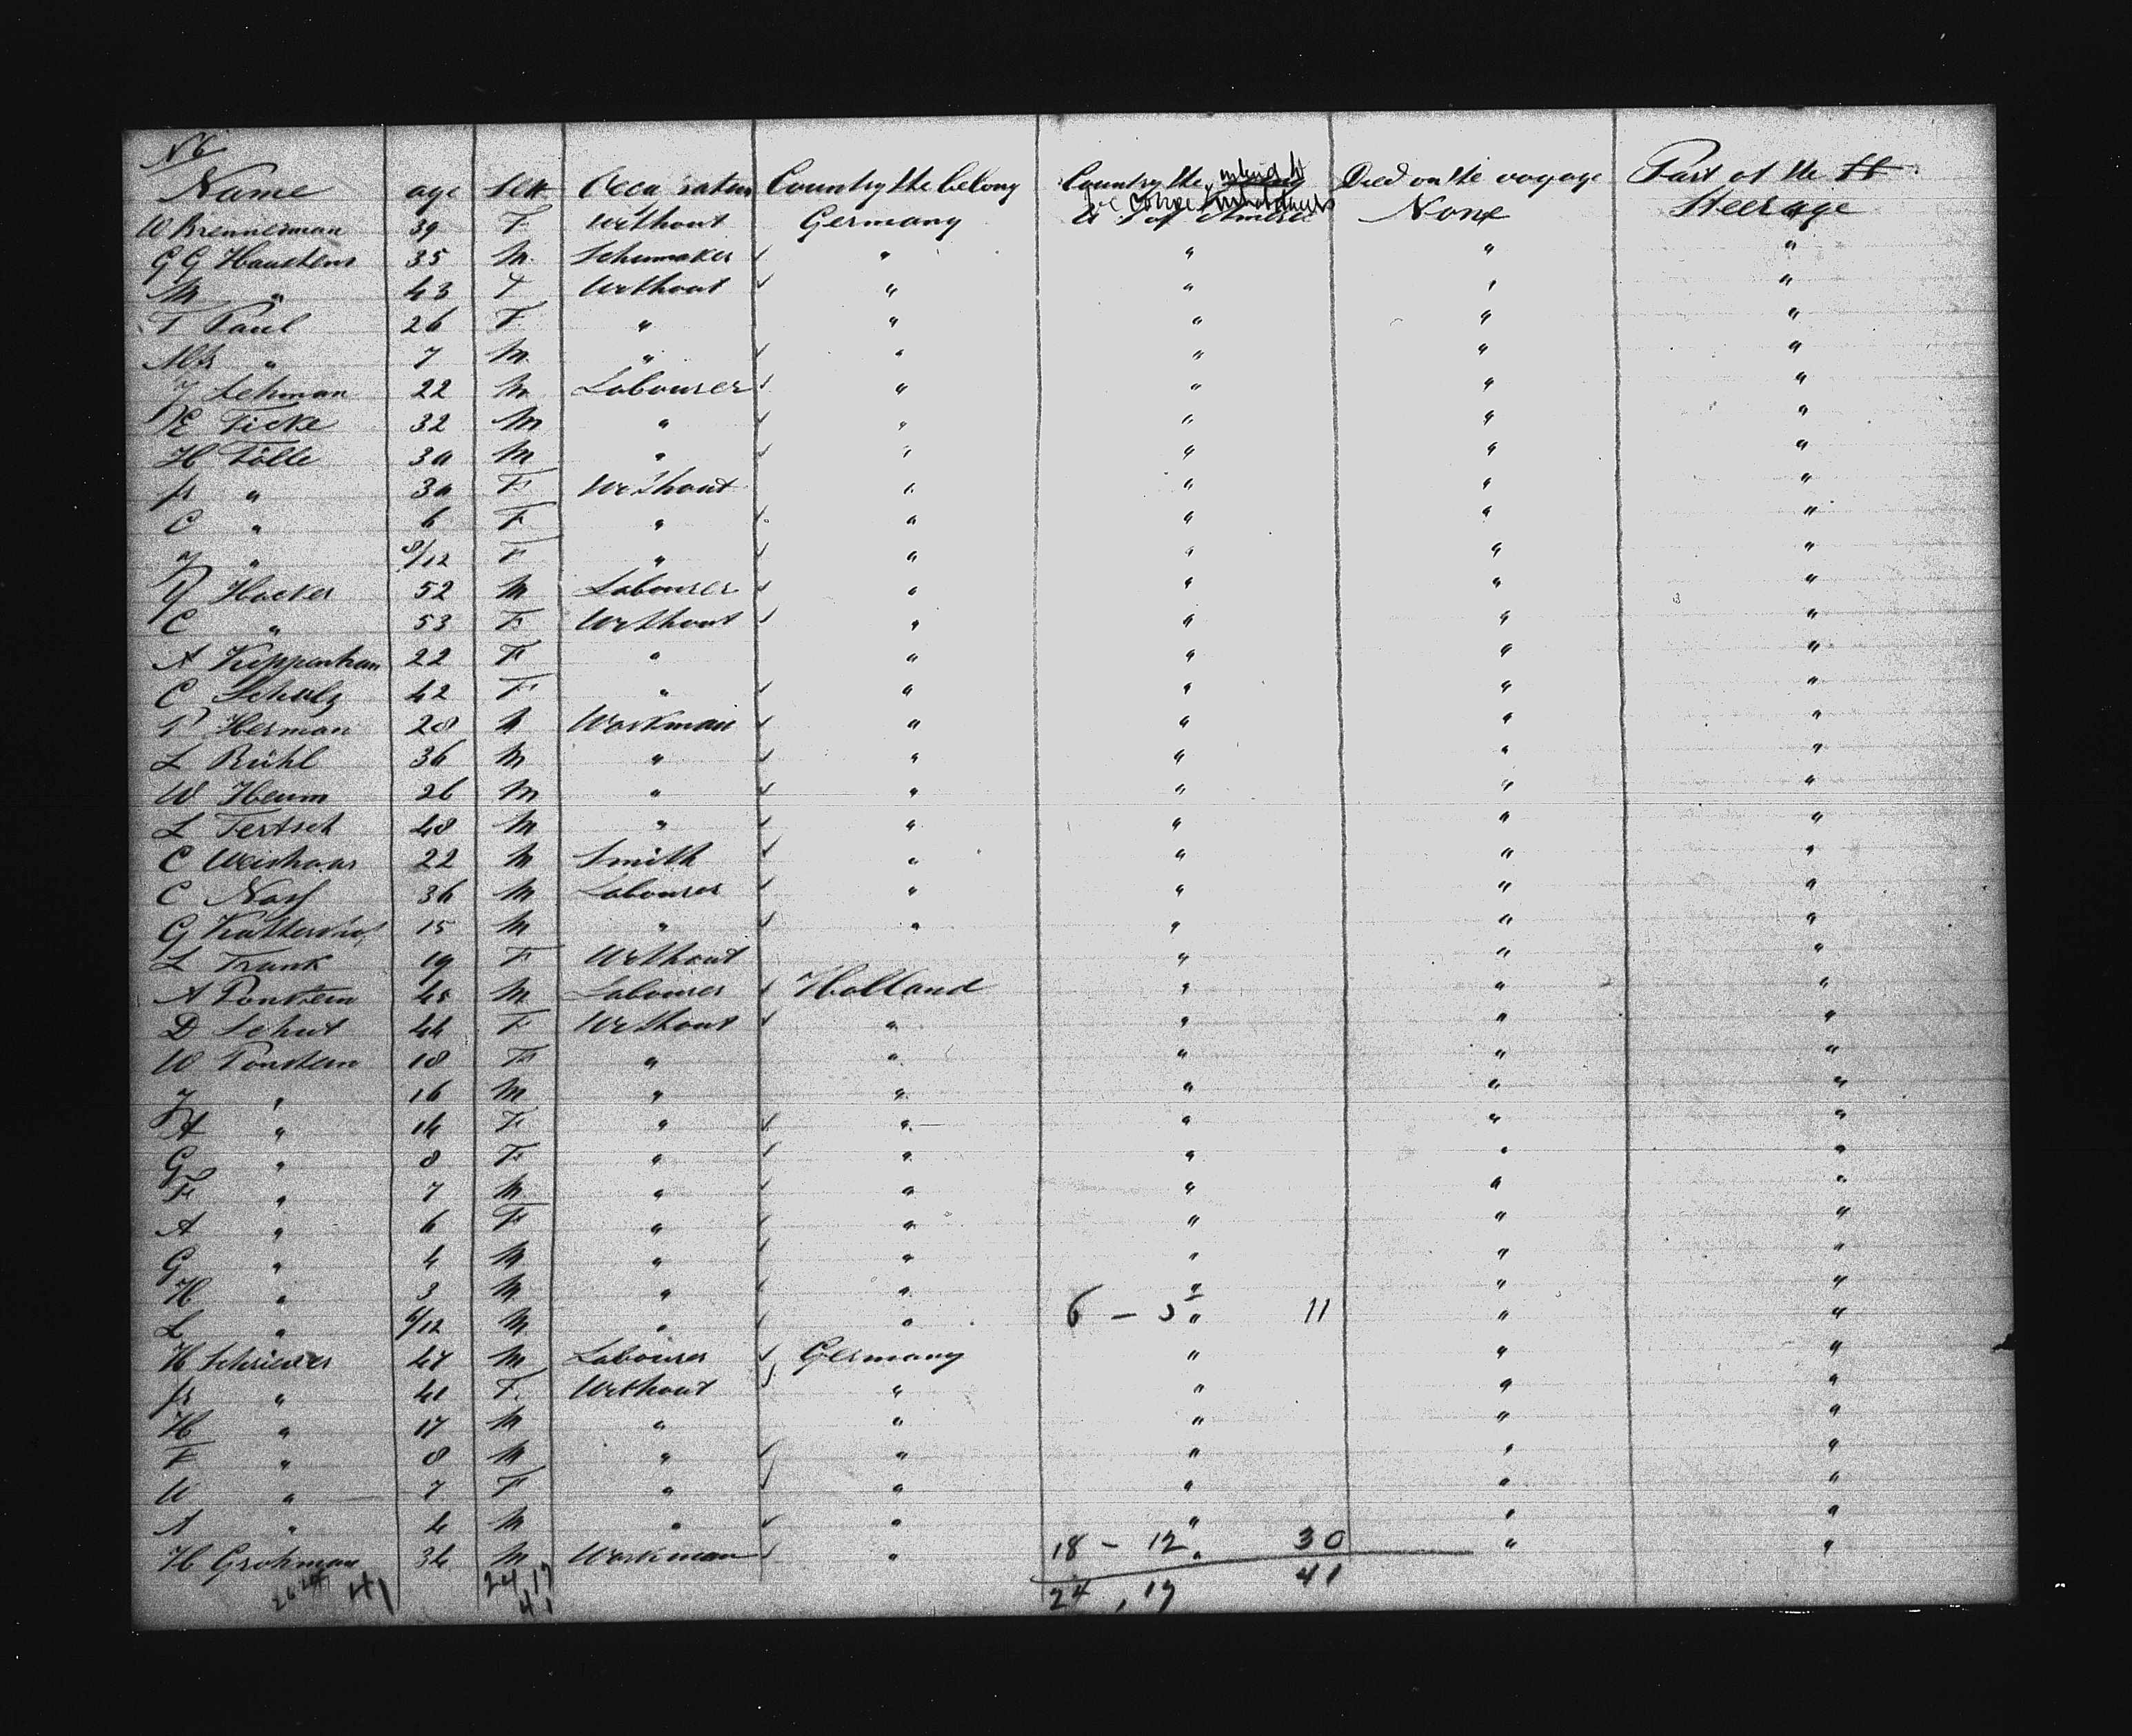 N6
Name age Sex Occu ration Country the belong Country the intend to become inhabitants Died on the voyage Part of the
W Brenneman 39 F Without Germany U S of America None Steerage
G G Hauchens 35 M Schumaker " " " "
M " 43 F Without " " " "
T Paul 26 F " " " " "
" 7 M " " " " "
J Lehman 22 M Labourer " " " "
E Ficke 32 M " " " " "
H Tölle 30 M " " " " "
fr " 30 F Without " " " "
C " 6 F " " " " "
J " 8/12 F " " " " "
Y Hacker 52 M Labourer " " " "
C " 53 F Without " " " "
A Kippenhan 22 F " " " " "
C Schulz 42 F " " " " "
P Herman 28 M Workman " " " "
L Bühl 36 M " " " " "
W Heum 26 M " " " " "
L Tertsch 48 M " " " " "
C Weishaar 22 M Smith " " " "
C Nass 36 M Labourer " " " "
G 15 M " " " " "
L Frank 19 F Without " " "
A Ponstein 45 M Labourer Holland " " "
D Schut 44 F Without " " " "
W Ponstein 18 F " " " " "
J " 16 M " " " " "
A " 14 F " " " " "
G " 8 F " " " " "
F " 7 M " " " " "
A " 6 F " " " " "
G " 4 M " " " " "
H " 3 M " " " " "
L " 6/12 M " " 6 - 5 " 11 " "
H Schriever 47 M Labourer Germany " " "
fr " 41 F Without " " " "
H " 17 M " " " " "
F " 8 M " " " " "
W " 7 F " " " " "
A " 4 M " " " " "
H Grohman 34 M Workman " 18 - 12 " 30 " "
41 24,17 24,17 41
41